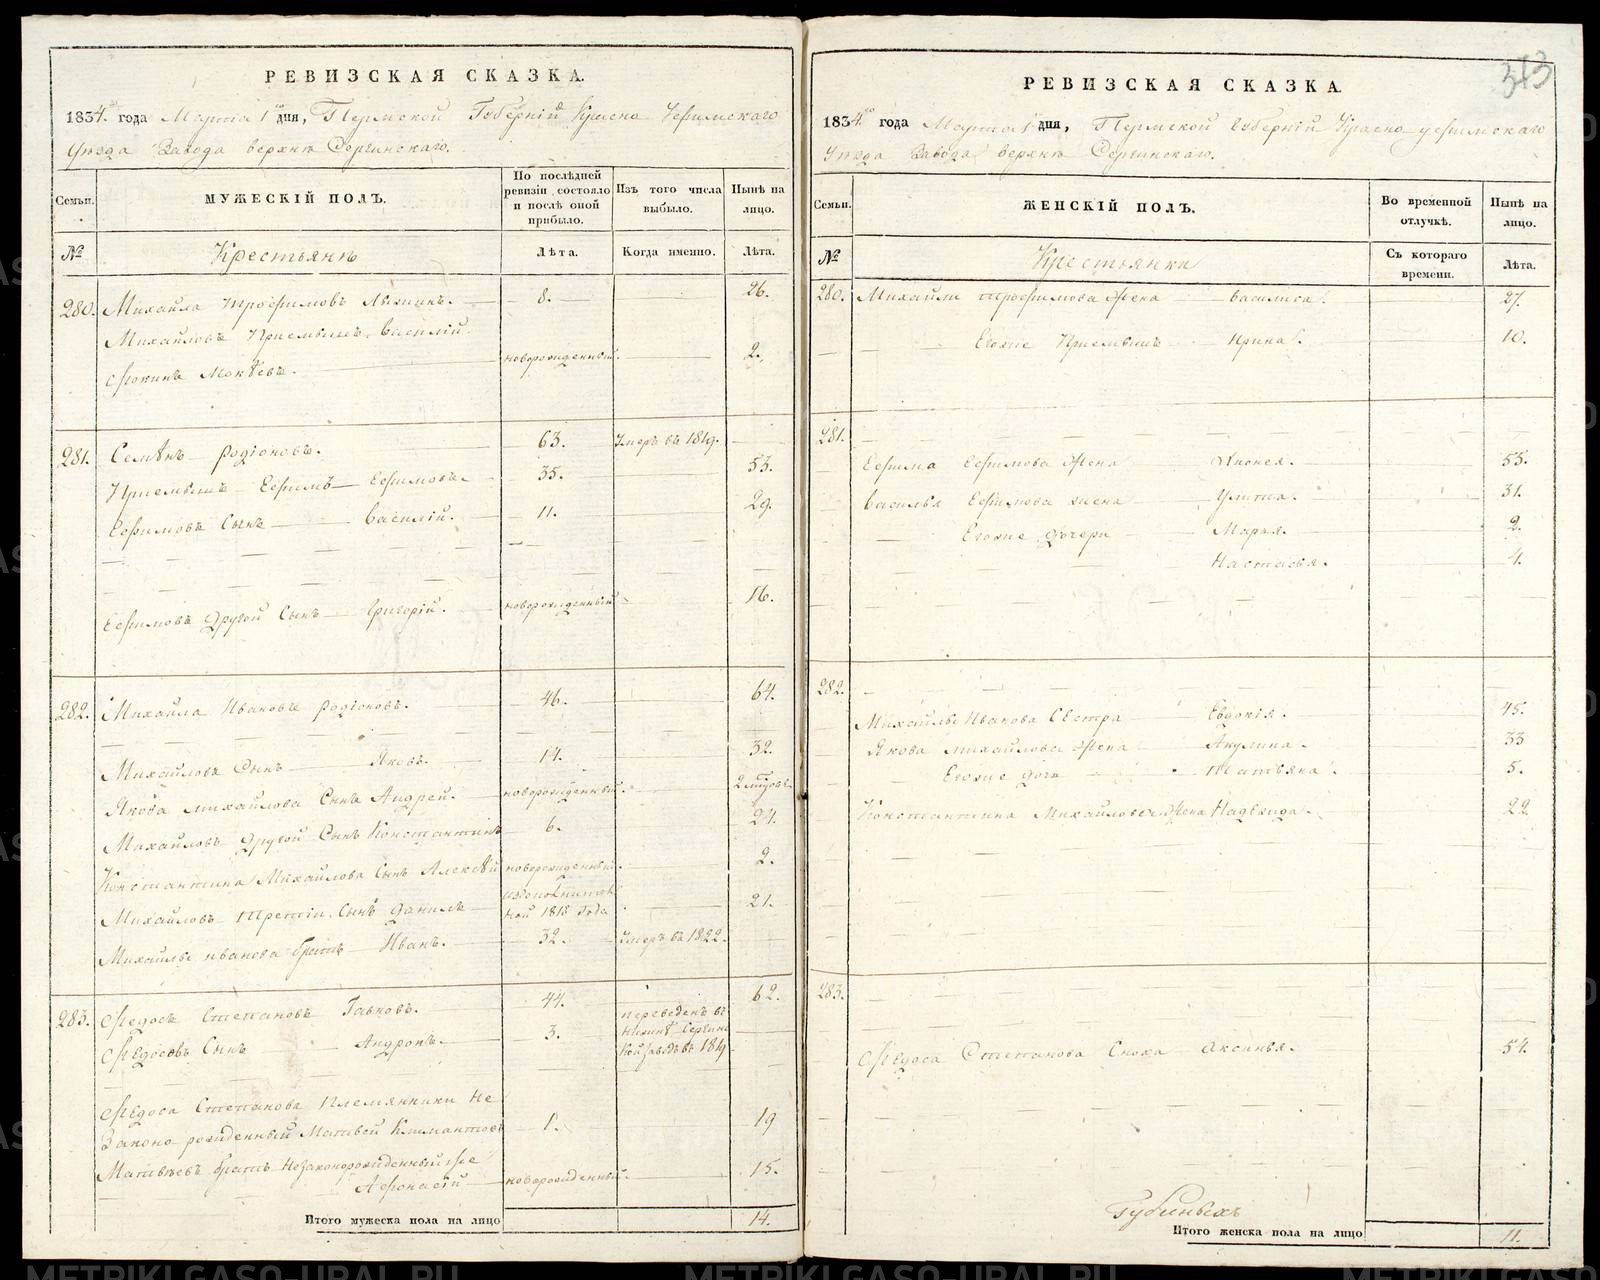 РЕВИЗСКАЯ СКАЗКА.
1834.го года Марта 1го дня, Пермской Губерній Красно Уфимскаго
Уѣзда Завода верхнѣ Сергинскаго.
Семьи.
МУЖЕСКІЙ ПОЛЪ.
По послѣдней ревизіи состояло и послѣ оной прибыло.
Изъ того числа выбыло.
Нынѣ на лицо.
№
Крестьянъ
Лѣта.
Когда именно.
Лѣта.
280. Михайла Трофимовъ 8. 26.
Михайловъ Приемышъ Василій
Мокѣевъ. новорожденный. 2.
281. Семёнъ Родіоновъ. 63. Умеръ въ 1819.
Приемышъ Ефимъ Ефимовъ. 35. 53.
Ефимовъ Сынъ Василій. 11. 29.
Ефимовъ Другой Сынъ Григорій. новорожденный 16.
282. Михайла Ивановъ Родіоновъ. 46. 64.
Михайлова Сынъ Яковъ. 14. 32.
Якова Михайлова Сынъ Андрей. новорожденный.
Михайловъ Другой Сынъ Константинъ 6. 24.
Константина Михайлова Сынъ Алексѣй новорожденный. 2.
Михайловъ Третіи Сынъ Данила 21.
Михайлы Иванова братъ Иванъ. 32. Умеръ въ 1822.
283. Федосъ Степановъ Гавковъ. 44. 62.
Федосовъ Сынъ Андронъ. 3. переведенъ въ Нижнѣ Сергинской заводъ въ 1819
Федоса Степанова Племянники Не
Законо рожденный Матвей 1. 19
Матвѣевъ братъ Незаконорожденный же
Афонасій новорожденный. 15.
Итого мужеска пола на лицо 14.
313
РЕВИЗСКАЯ СКАЗКА.
1834.го года Марта 1го дня, Пермской Губерній Красно уфимскаго
Уѣзда Завода верхнѣ Сергинскаго.
Семьи.
ЖЕНСКІЙ ПОЛЪ.
Во временной отлучкѣ.
Нынѣ на лицо.
№
Крестьянки
Съ котораго времени.
Лѣта.
280. Михайлы Трофимова Жена Василиса. 27.
Евоже Приемышъ Ирина. 10.
281. Ефима Ефимова Жена 55.
Василья Ефимова жена Улита. 31.
Евоже Дочери Марья. 9.
Настасья. 4.
282.
Михайлы Иванова Сестра Евдокія. 45.
Якова Михайлова Жена Акулина. 33
Евоже дочь Татьяна. 5.
Константина Михайлова Жена Надежда. 22
283.
Федоса Степанова Сноха Аксинья. 54.
Губиныхъ
Итого женска пола на лицо 11.
METRIKI.GASO-URAL.RU